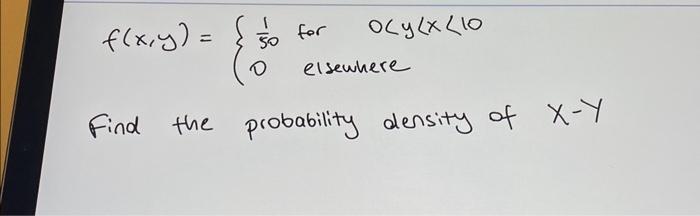 f(x,y) = { 1/50 for 0<y<x<10
0 elsewhere
Find the probability density of X-Y